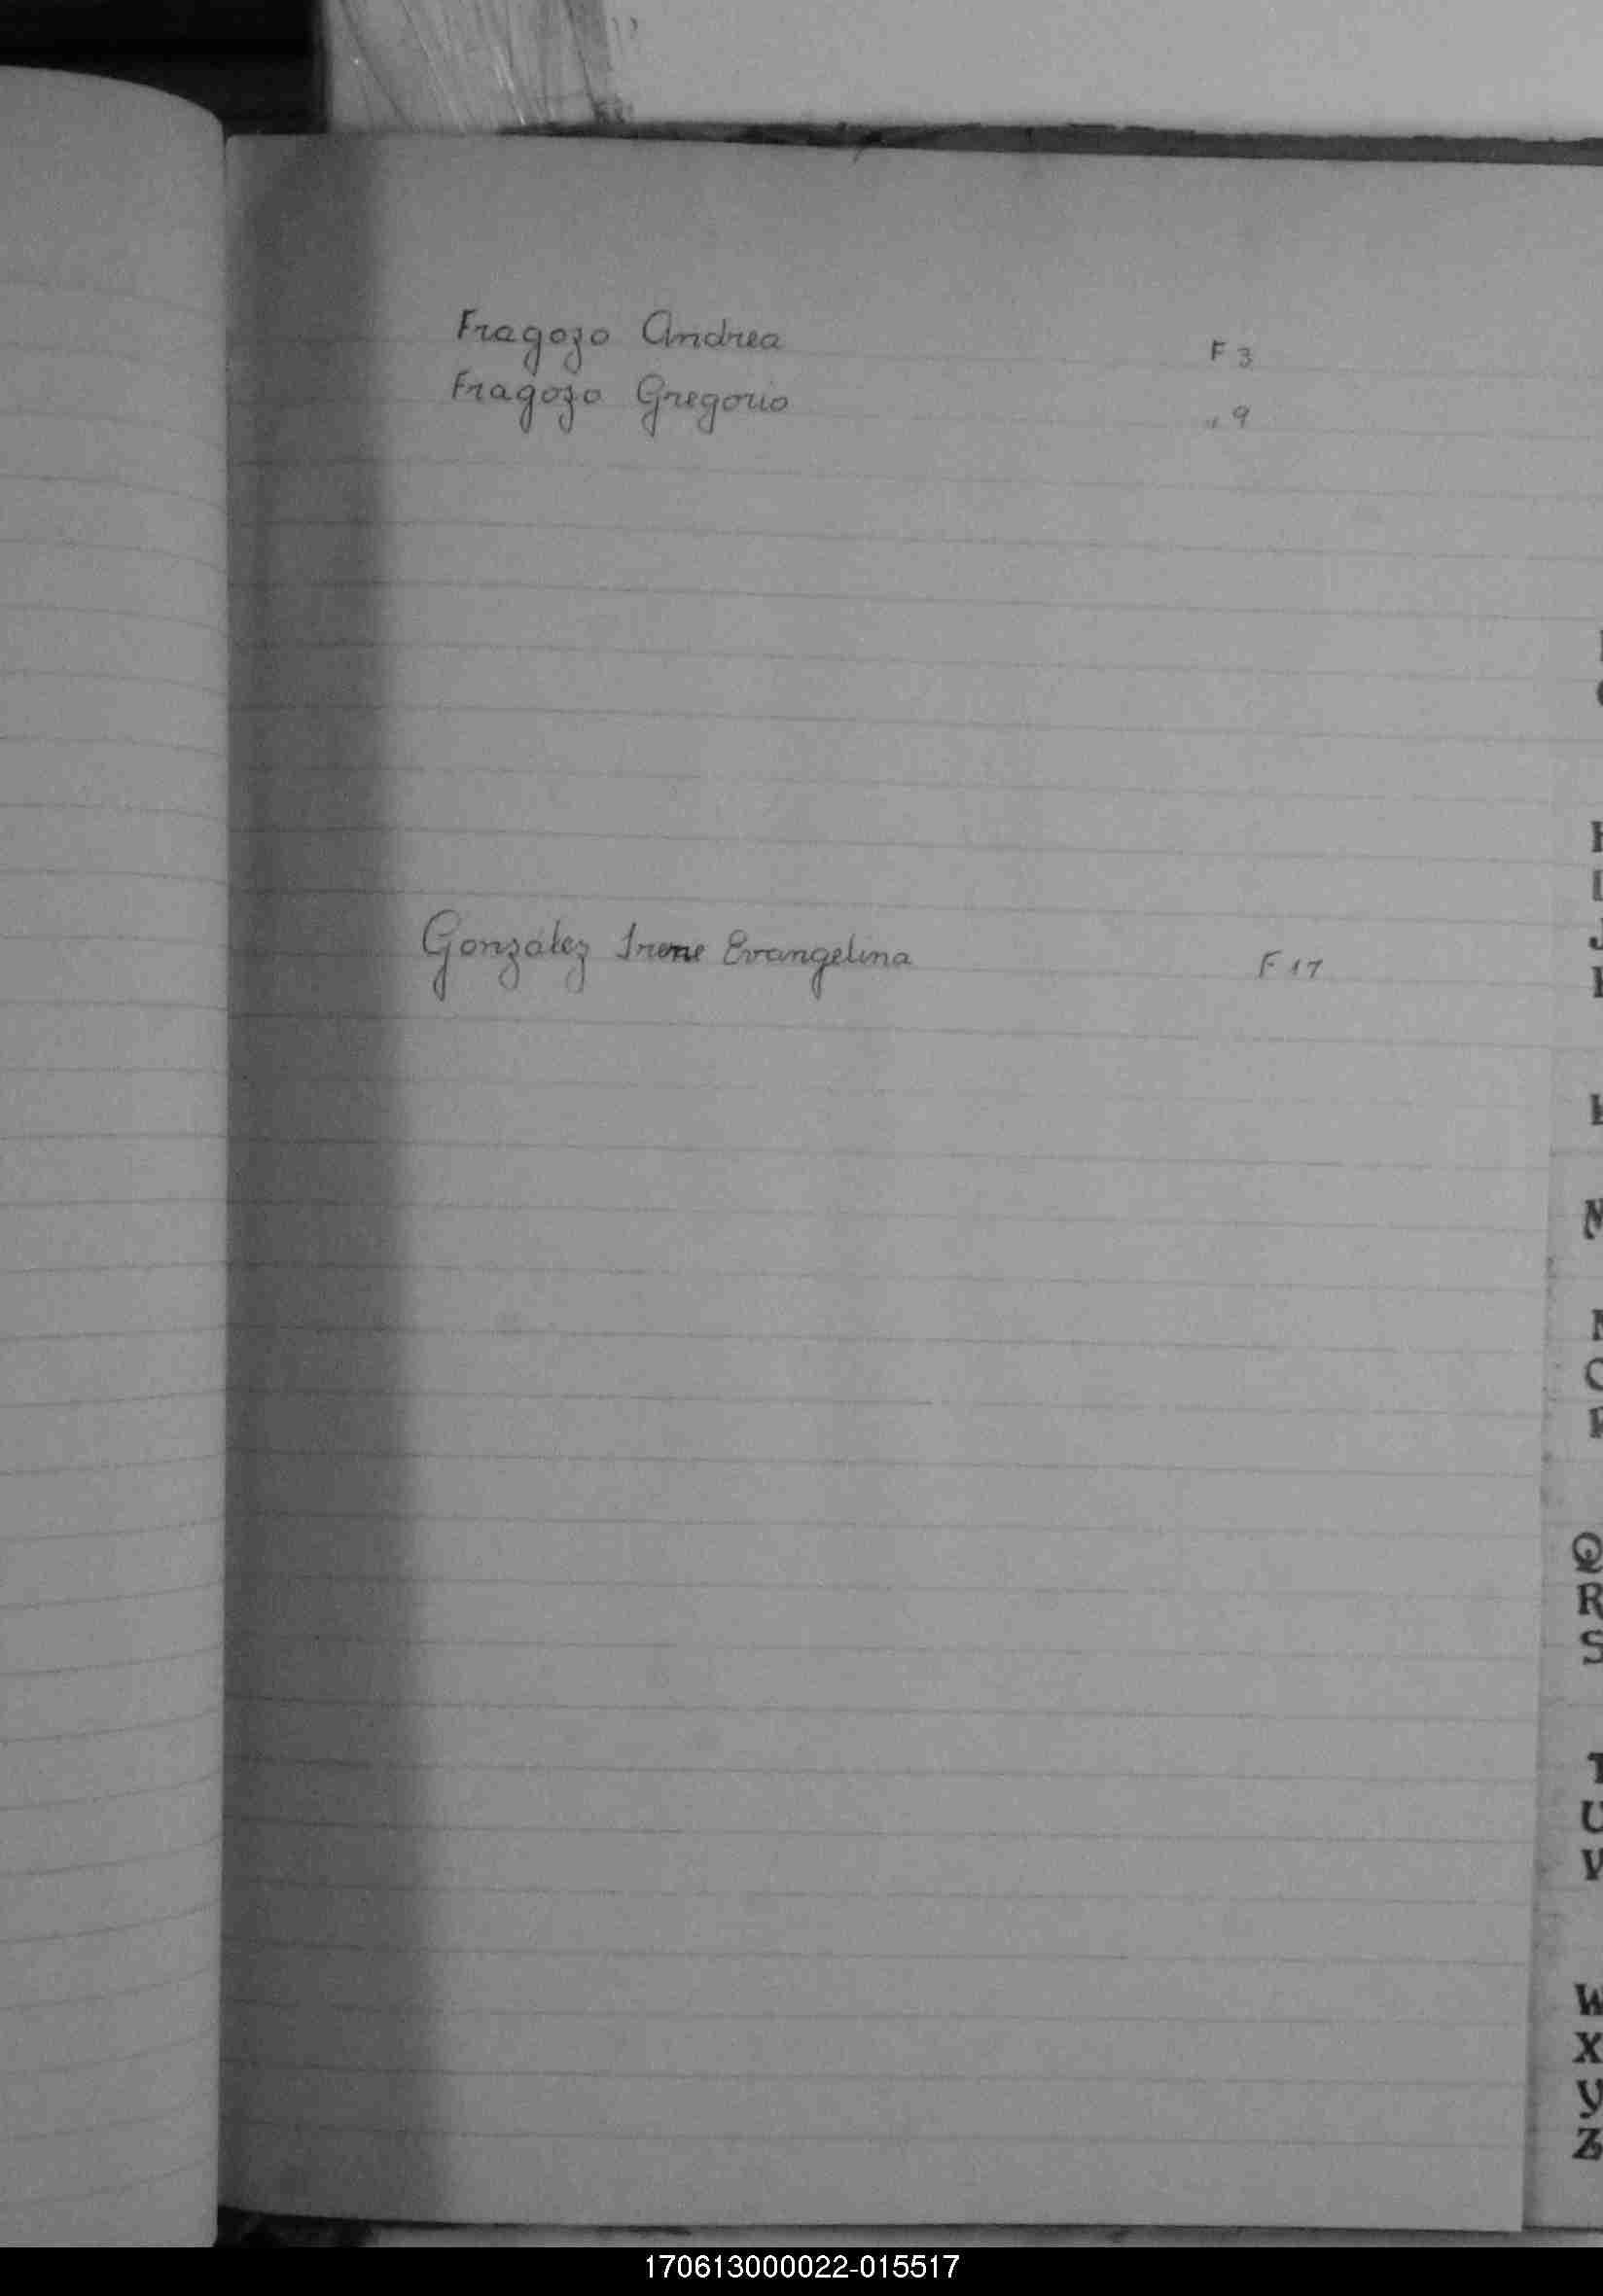 Fragozo Andrea F 3
Fragozo Gregorio " 9
González Irene Evangelina F 17
M
Q
R
S
U
V
W
X
Y
Z
170613000022-015517